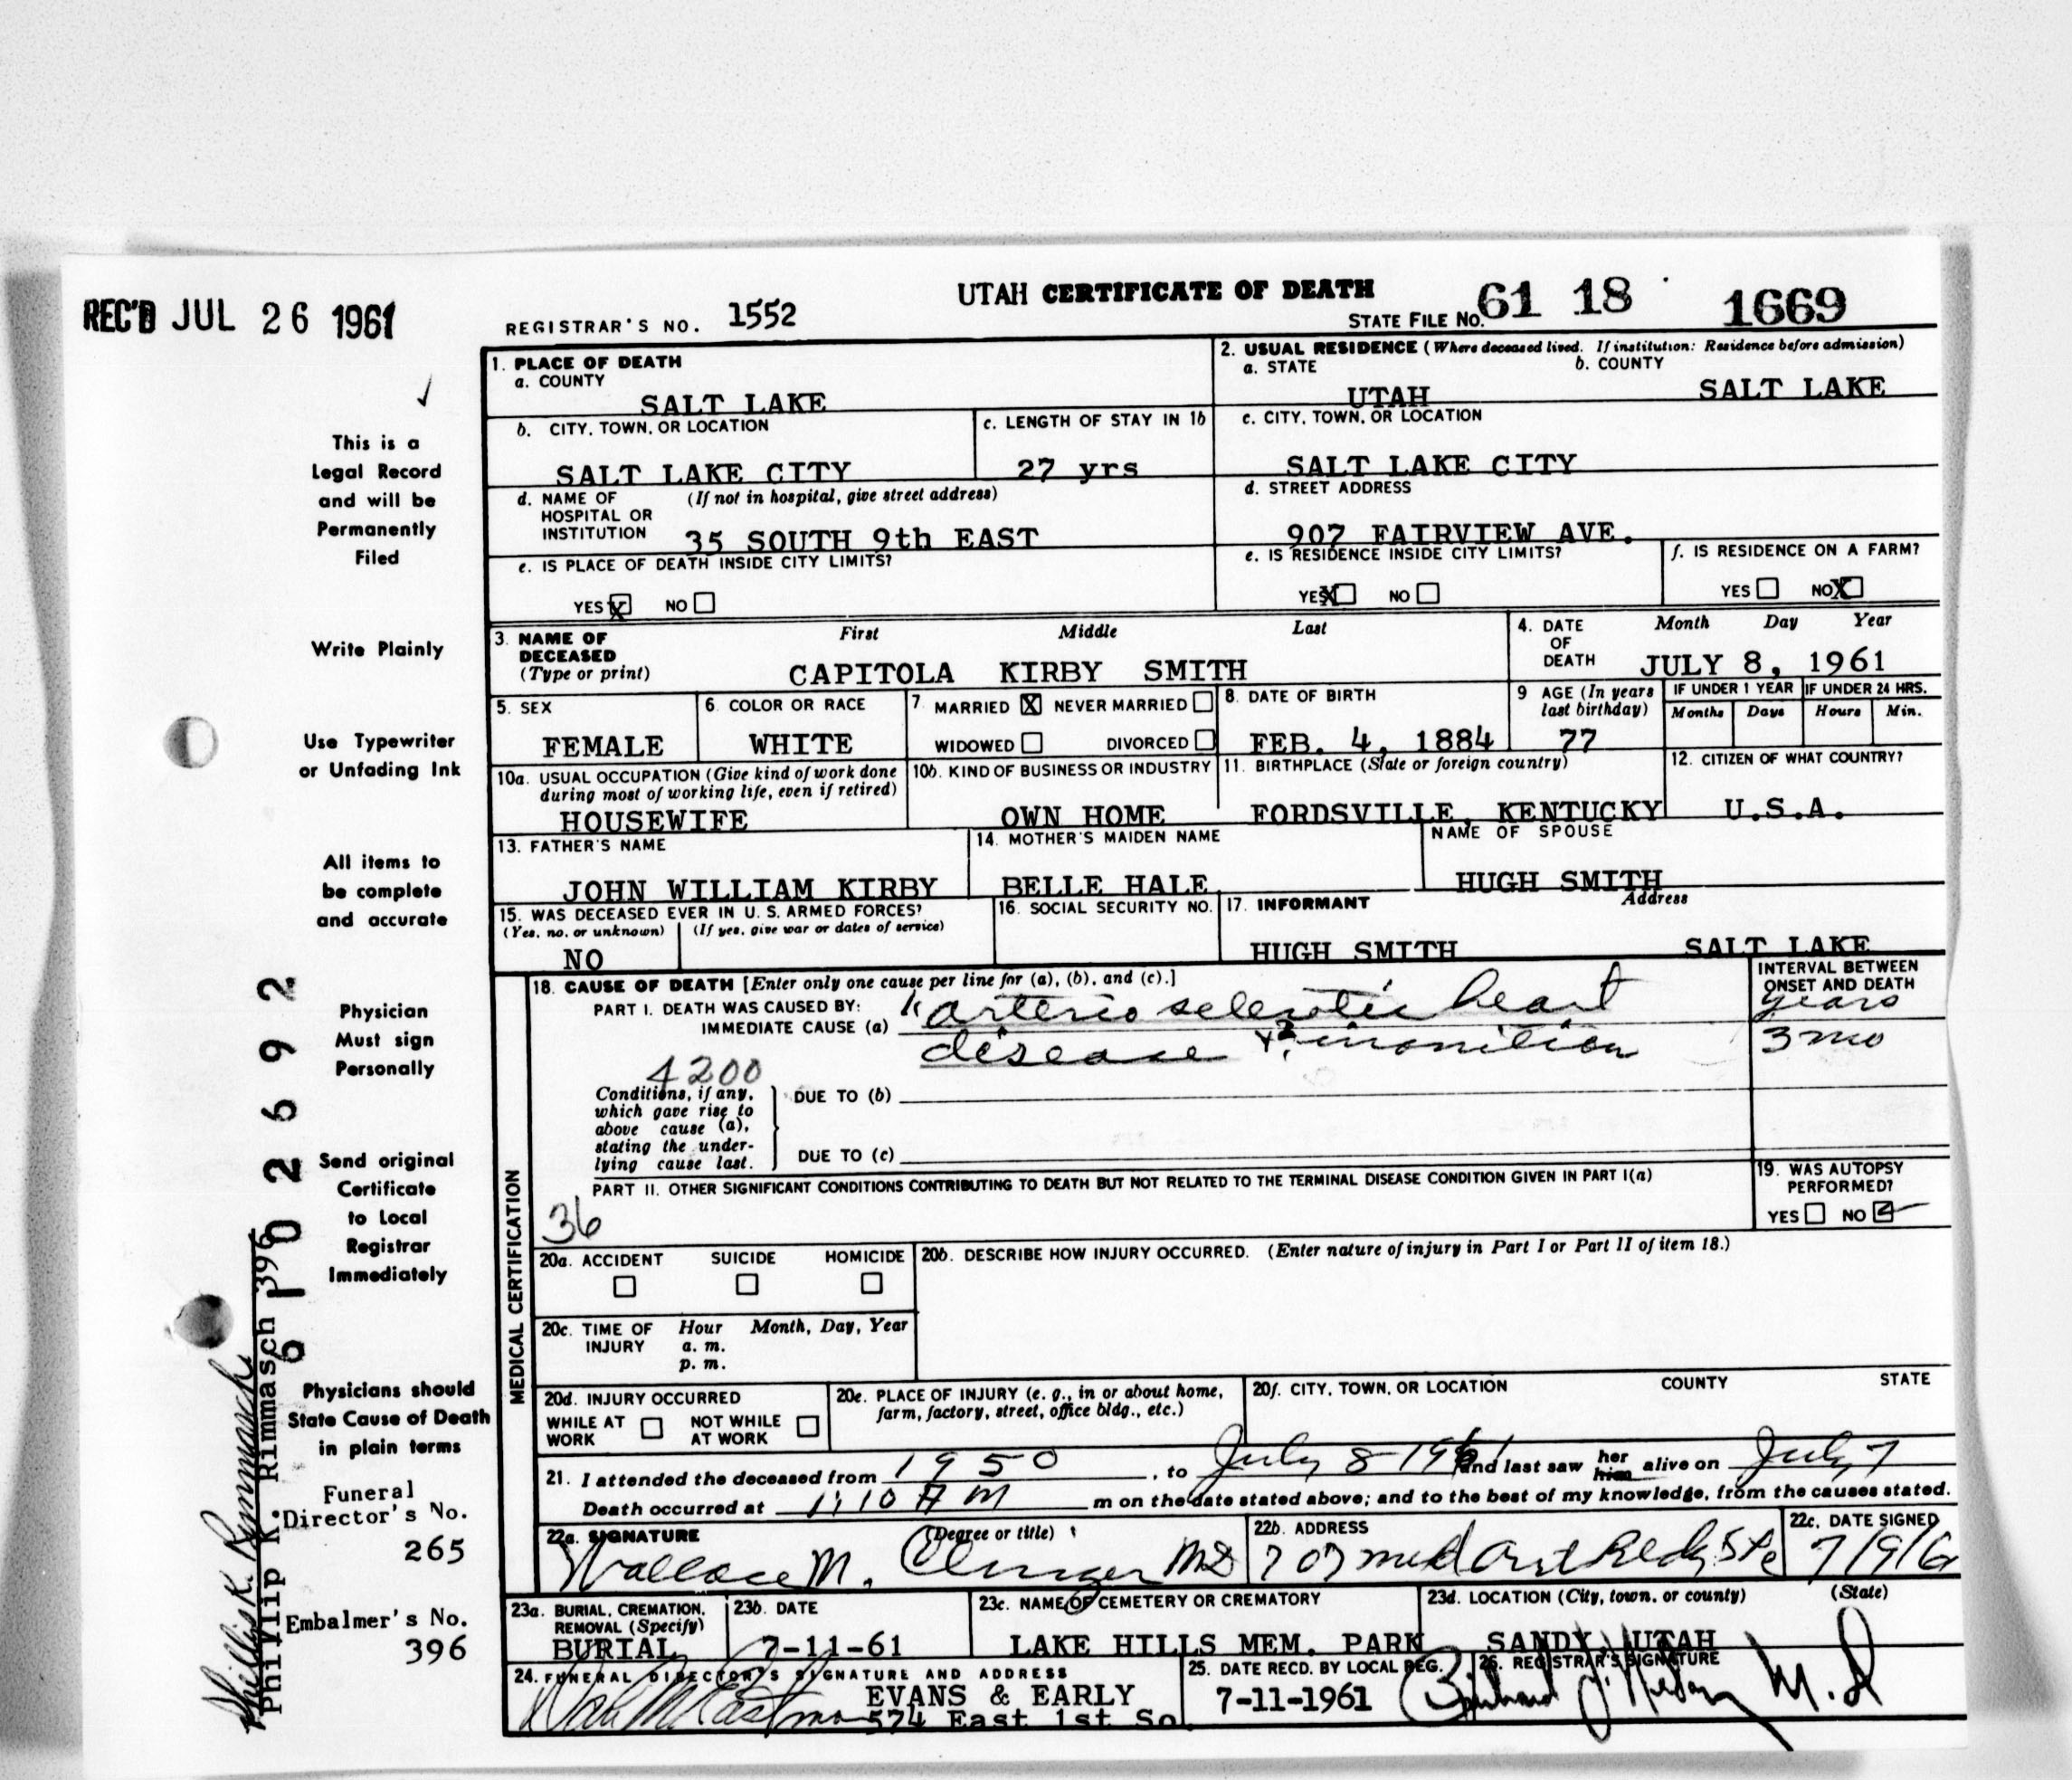 REC'D JUL 26 1961
REGISTRAR'S NO. 1552
UTAH CERTIFICATE OF DEATH
STATE FILE NO. 61 18 1669
This is a
Legal Record
and will be
Permanently
Filed
Write Plainly
Use Typewriter
or Unfading Ink
All items to
be complete
and accurate
Physician
Must sign
Personally
Send original
Certificate
to Local
Registrar
Immediately
Physicians should
State Cause of Death
in plain terms
Funeral
Director's No.
265
Embalmer's No.
396
Philip K. Rimmasch 396
6102692
1. PLACE OF DEATH
a. COUNTY
SALT LAKE
b. CITY, TOWN, OR LOCATION
SALT LAKE CITY
c. LENGTH OF STAY IN 1b
27 yrs
d. NAME OF HOSPITAL OR INSTITUTION (If not in hospital, give street address)
35 SOUTH 9th EAST
e. IS PLACE OF DEATH INSIDE CITY LIMITS?
YES X NO
2. USUAL RESIDENCE (Where deceased lived. If institution: Residence before admission)
a. STATE
UTAH
b. COUNTY
SALT LAKE
c. CITY, TOWN, OR LOCATION
SALT LAKE CITY
d. STREET ADDRESS
907 FAIRVIEW AVE.
e. IS RESIDENCE INSIDE CITY LIMITS?
YES X NO
f. IS RESIDENCE ON A FARM?
YES NO X
3. NAME OF DECEASED (Type or print)
First Middle Last
CAPITOLA KIRBY SMITH
4. DATE OF DEATH
Month Day Year
JULY 8, 1961
5. SEX
FEMALE
6. COLOR OR RACE
WHITE
7. MARRIED X NEVER MARRIED
WIDOWED DIVORCED
8. DATE OF BIRTH
FEB. 4, 1884
9 AGE (In years last birthday)
77
IF UNDER 1 YEAR
Months Days
IF UNDER 24 HRS.
Hours Min.
10a. USUAL OCCUPATION (Give kind of work done during most of working life, even if retired)
HOUSEWIFE
10b. KIND OF BUSINESS OR INDUSTRY
OWN HOME
11. BIRTHPLACE (State or foreign country)
FORDSVILLE, KENTUCKY
12. CITIZEN OF WHAT COUNTRY?
U.S.A.
13. FATHER'S NAME
JOHN WILLIAM KIRBY
14. MOTHER'S MAIDEN NAME
BELLE HALE
NAME OF SPOUSE
HUGH SMITH
15. WAS DECEASED EVER IN U. S. ARMED FORCES?
(Yes, no, or unknown) (If yes, give war or dates of service)
NO
16. SOCIAL SECURITY NO.
17. INFORMANT Address
HUGH SMITH SALT LAKE
MEDICAL CERTIFICATION
18. CAUSE OF DEATH [Enter only one cause per line for (a), (b), and (c).]
PART I. DEATH WAS CAUSED BY:
IMMEDIATE CAUSE (a) arterio sclerotic heart
disease inanition
INTERVAL BETWEEN ONSET AND DEATH
years
3 mo
4200
Conditions, if any,
which gave rise to
above cause (a),
stating the under-
lying cause last.
DUE TO (b)
DUE TO (c)
PART II. OTHER SIGNIFICANT CONDITIONS CONTRIBUTING TO DEATH BUT NOT RELATED TO THE TERMINAL DISEASE CONDITION GIVEN IN PART I(a)
36
19. WAS AUTOPSY PERFORMED?
YES NO
20a. ACCIDENT SUICIDE HOMICIDE
20b. DESCRIBE HOW INJURY OCCURRED. (Enter nature of injury in Part I or Part II of item 18.)
20c. TIME OF INJURY
Hour Month, Day, Year
a. m.
p. m.
20d. INJURY OCCURRED
WHILE AT WORK NOT WHILE AT WORK
20e. PLACE OF INJURY (e. g., in or about home, farm, factory, street, office bldg., etc.)
20f. CITY, TOWN, OR LOCATION COUNTY STATE
21. I attended the deceased from 1950, to July 8 1961 and last saw her him alive on July 7
Death occurred at 1:10 A M m on the date stated above; and to the best of my knowledge, from the causes stated.
22a. SIGNATURE (Degree or title)
Wallace M. MD
22b. ADDRESS
707 med art Bldg
22c. DATE SIGNED
7/9/61
23a. BURIAL, CREMATION, REMOVAL (Specify)
BURIAL
23b. DATE
7-11-61
23c. NAME OF CEMETERY OR CREMATORY
LAKE HILLS MEM. PARK
23d. LOCATION (City, town, or county) (State)
SANDY, UTAH
24. FUNERAL DIRECTOR'S SIGNATURE AND ADDRESS
EVANS & EARLY
574 East 1st So.
25. DATE RECD. BY LOCAL REG.
7-11-1961
26. REGISTRAR'S SIGNATURE
M.D